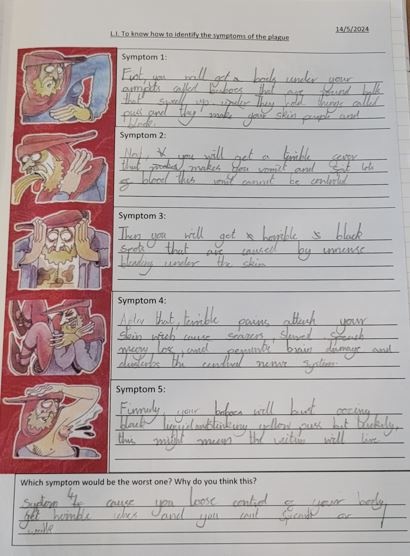 14/5/2024
L.I. To know how to identify the symptoms of the plague
Symptom 1:
First, you will get a body under your
armpits called buboes that are found balls
that swell up under they hold things called
puss and they make your skin purple and
black.
Symptom 2:
Next, you will get a terrible fever
that makes you vomit and lots
of blood this vomit cannot be controled
Symptom 3:
Then you will get horrible black
spots that are caused by imense
bleeding under the skin
Symptom 4:
After that, terrible pains attack your
skin wich cause seazers, slured speach
memory loss, and brain damage and
the nerve system.
Symptom 5:
Finnerly, your buboes will burst oozing
black liquid and stinking yellow puss but luckely,
this might mean the victim will live
Which symptom would be the worst one? Why do you think this?
4 cause you loose control of your body
get horrible and you cant speak or
walk